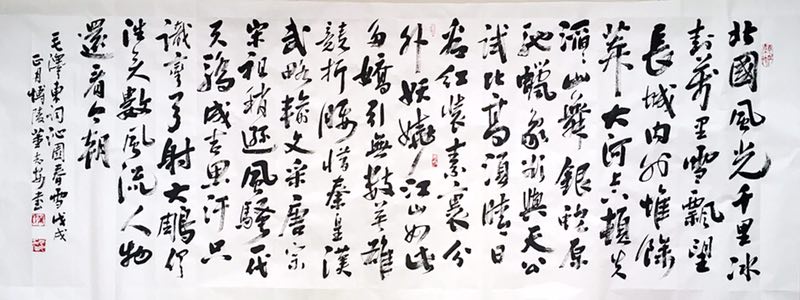 北國風光千里冰
封萬里雪飄望
長城内外惟餘
莽大河上下頓失
滔山舞銀蛇原
馳蠟象欲與天公
試比高須晴日
看紅裝素裹分
外妖嬈江山如此
多嬌引無數英雄
競折腰惜秦皇漢
武略輸文采唐宗
宋祖稍遜風騷一代
天驕成吉思汗只
識彎弓射大雕俱
往矣數風流人物
還看今朝
毛澤東詞沁園春雪戊戌
正月博陵董志書